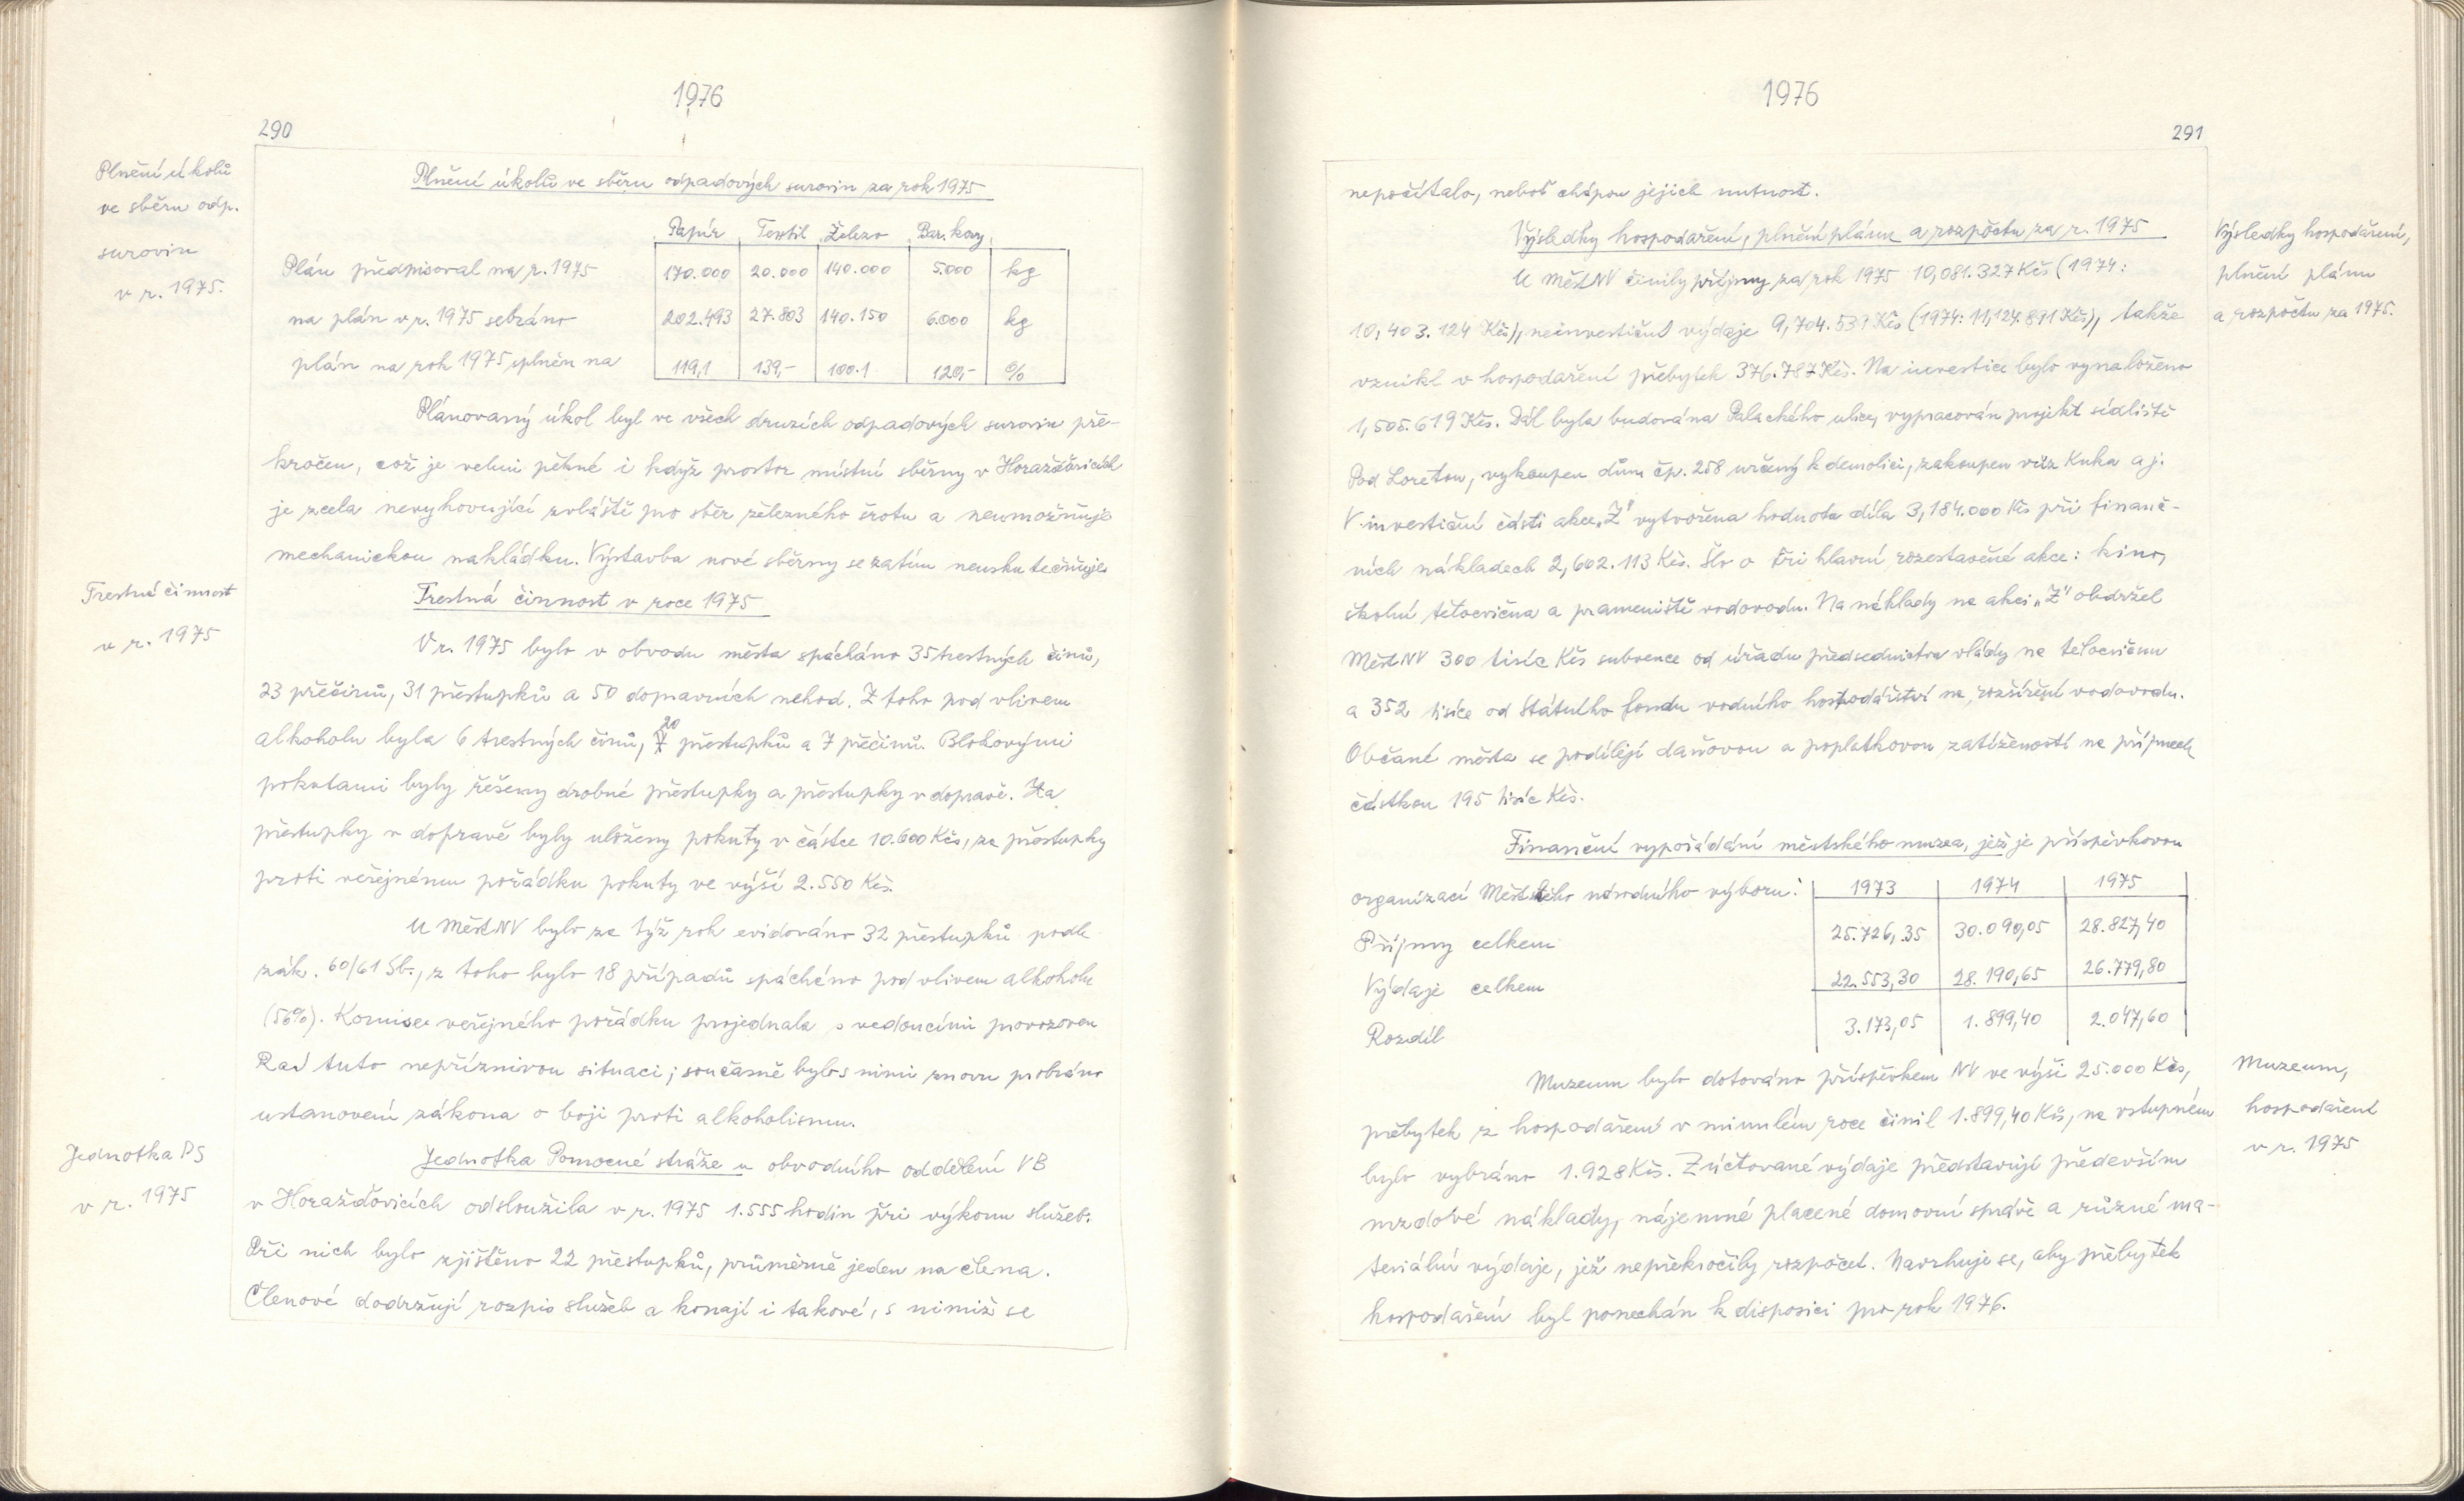 1976
290
Plnění úkolů
ve sběru odp.
surovin
v r. 1975.
Plnění úkolů ve sběru odpadových surovin za rok 1975
Papír Textil Železo Bar. kovy
Plán předpisoval na r. 1975 170.000 20.000 140.000 5.000 kg
na plán v r. 1975 sebráno 202.493 27.803 140.150 6.000 kg
plán na rok 1975 splněn na 119,1 139,- 100.1 120,- %
Plánovaný úkol byl ve všech druzích odpadových surovin pře-
kročen, což je velmi pěkné i když prostor místní sběrny v Horažďovicích
je zcela nevyhovující zvláště pro sběr železného šrotu a neumožňuje
mechanickou nakládku. Výstavba nové sběrny se zatím neuskutečňuje.
Trestná činnost
v r. 1975
Trestná činnost v roce 1975
V r. 1975 bylo v obvodu města spácháno 35 trestných činů,
23 přečinů, 31 přestupků a 50 dopravních nehod. Z toho pod vlivem
alkoholu byla 6 trestných činů, 20 přestupků a 7 přečinů. Blokovými
pokutami byly řešeny drobné přestupky a přestupky v dopravě. Za
přestupky v dopravě byly uloženy pokuty v částce 10.600 Kčs, za přestupky
proti veřejnému pořádku pokuty ve výši 2.550 Kčs.
U MěstNV bylo za týž rok evidováno 32 přestupků podle
zák. 60/61 Sb., z toho bylo 18 případů spácháno pod vlivem alkoholu
(56%). Komise veřejného pořádku projednala s vedoucími provozoven
RaJ tuto nepříznivou situaci; současně bylo s nimi znovu probráno
ustanovení zákona o boji proti alkoholismu.
Jednotka PS
v r. 1975
Jednotka Pomocné stráže u obvodního oddělení VB
v Horažďovicích odsloužila v r. 1975 1.555 hodin při výkonu služeb.
Při nich bylo zjištěno 22 přestupků, průměrně jeden na člena.
Členové dodržují rozpis služeb a konají i takové, s nimiž se
1976
291
nepočítalo, neboť chápou jejich nutnost.
Výsledky hospodaření, plnění plánu a rozpočtu za r. 1975
Výsledky hospodaření,
plnění plánu
a rozpočtu za 1975.
U MěstNV činily příjmy za rok 1975 10,081.327 Kčs (1974:
10,403.124 Kčs), neinvestiční výdaje 9,704.539 Kčs (1974: 11,124.891 Kčs), takže
vznikl v hospodaření přebytek 376.787 Kčs. Na investice bylo vynaloženo
1,505.619 Kčs. Dál byla budována Palackého ulice, vypracován projekt sídliště
Pod Loretou, vykoupen dům čp. 258 určený k demolici, zakoupen vůz Kuka a j.
V investiční části akce „Z" vytvořena hodnota díla 3,184.000 Kčs při finanč-
ních nákladech 2,602.113 Kčs. Šlo o tři hlavní rozestavěné akce: kino,
školní tělocvična a prameniště vodovodu. Na náklady na akci „Z" obdržel
MěstNV 300 tisíc Kčs subvence od úřadu předsednictva vlády na tělocvičnu
a 352 tisíce od Státního fondu vodního hospodářství na rozšíření vodovodu.
Občané města se podílejí daňovou a poplatkovou zatíženosti na příjmech
částkou 195 tisíc Kčs.
Finanční vypořádání městského muzea, jež je příspěvkovou
organizací Městského národního výboru: 1973 1974 1975
Příjmy celkem 25.726,35 30.090,05 28.827,40
Výdaje celkem 22.553,30 28.190,65 26.779,80
Rozdíl 3.173,05 1.899,40 2.047,60
Muzeum,
hospodaření
v r. 1975
Muzeum bylo dotováno příspěvkem NV ve výši 25.000 Kčs,
přebytek z hospodaření v minulém roce činil 1.899,40 Kčs, na vstupném
bylo vybráno 1.928 Kčs. Zúčtované výdaje představují především
mzdové náklady, nájemné placené domovní správě a různé ma-
teriální výdaje, jež nepřekročily rozpočet. Navrhuje se, aby přebytek
hospodaření byl ponechán k disposici pro rok 1976.